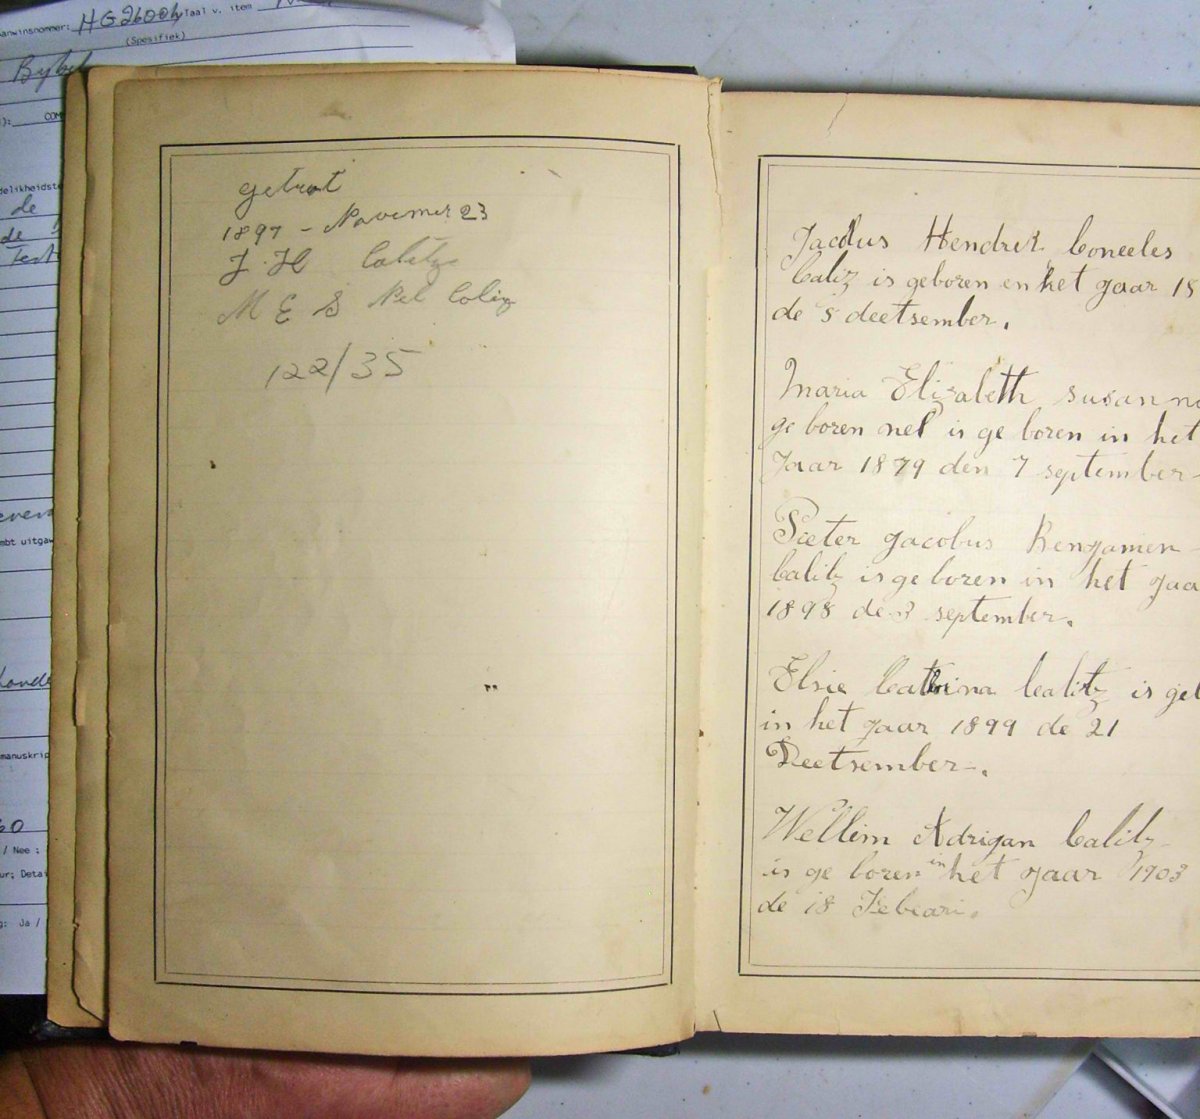 anwinsnommer: HG2600h Taal v. item
(Spesifiek)
Bybel
COM
de
de
manuskrip
/ Nee :
ur; Detai
g: Ja /
getrut
1897 - Novemer 23
J. H Calitz
M E S Nel Coliz
122/35
Jacobus Hendrik Coneeles
Caliz is geboren en het gaar 18
de 8 deetsember.
Maria Elizabeth susanna
ge boren nel is ge boren in het
Jaar 1879 den 7 september -
Pieter Jacobus Bengamen
Calitz is ge boren in het gaa
1898 de 3 september.
Elsie Catrina Calitz is geb
in het gaar 1899 de 21
Deetsember -.
Wellim Adrigan Calitz
is ge boren in het gaar 1903
de 18 Febeari.